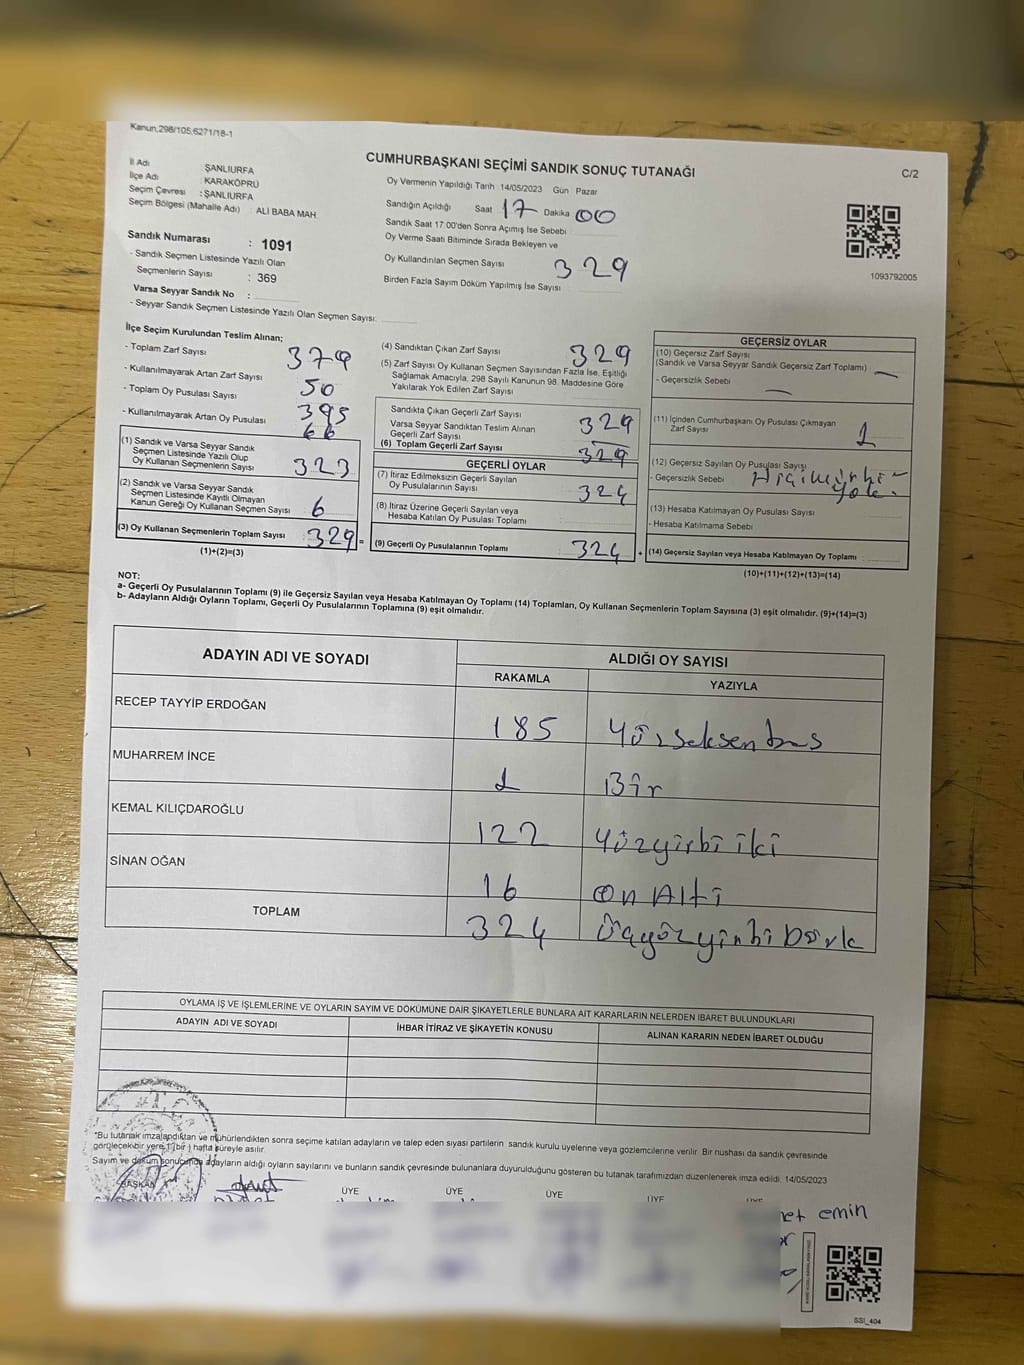 Kanun;298/105;6271/18-1
CUMHURBAŞKANI SEÇİMİ SANDIK SONUÇ TUTANAĞI
C/2
İl Adı ŞANLIURFA
İlçe Adı : KARAKÖPRÜ
Seçim Çevresi : ŞANLIURFA
Seçim Bölgesi (Mahalle Adı) : ALİ BABA MAH.
Oy Vermenin Yapıldığı Tarih 14/05/2023 Gün Pazar
Sandığın Açıldığı Saat 17 Dakika 00
Sandık Saat 17:00'den Sonra Açılmış İse Sebebi
Oy Verme Saati Bitiminde Sırada Bekleyen ve
Oy Kullandırılan Seçmen Sayısı 329
Birden Fazla Sayım Döküm Yapılmış İse Sayısı
1093792005
Sandık Numarası : 1091
- Sandık Seçmen Listesinde Yazılı Olan
Seçmenlerin Sayısı : 369
Varsa Seyyar Sandık No :
- Seyyar Sandık Seçmen Listesinde Yazılı Olan Seçmen Sayısı:
İlçe Seçim Kurulundan Teslim Alınan;
- Toplam Zarf Sayısı 379
- Kullanılmayarak Artan Zarf Sayısı 50
- Toplam Oy Pusulası Sayısı 395
- Kullanılmayarak Artan Oy Pusulası 66
(1) Sandık ve Varsa Seyyar Sandık
Seçmen Listesinde Yazılı Olup
Oy Kullanan Seçmenlerin Sayısı 323
(2) Sandık ve Varsa Seyyar Sandık
Seçmen Listesinde Kayıtlı Olmayan
Kanun Gereği Oy Kullanan Seçmen Sayısı 6
(3) Oy Kullanan Seçmenlerin Toplam Sayısı : 329 =
(1)+(2)=(3)
(4) Sandıktan Çıkan Zarf Sayısı 329
(5) Zarf Sayısı Oy Kullanan Seçmen Sayısından Fazla İse, Eşitliği
Sağlamak Amacıyla, 298 Sayılı Kanunun 98. Maddesine Göre
Yakılarak Yok Edilen Zarf Sayısı
Sandıkta Çıkan Geçerli Zarf Sayısı 329
Varsa Seyyar Sandıktan Teslim Alınan
Geçerli Zarf Sayısı
(6) Toplam Geçerli Zarf Sayısı 329
GEÇERLİ OYLAR
(7) İtiraz Edilmeksizin Geçerli Sayılan
Oy Pusulalarının Sayısı 324
(8) İtiraz Üzerine Geçerli Sayılan veya
Hesaba Katılan Oy Pusulası Toplamı
(9) Geçerli Oy Pusulalarının Toplamı 324 +
GEÇERSİZ OYLAR
(10) Geçersiz Zarf Sayısı
(Sandık ve Varsa Seyyar Sandık Geçersiz Zarf Toplamı) —
- Geçersizlik Sebebi —
(11) İçinden Cumhurbaşkanı Oy Pusulası Çıkmayan
Zarf Sayısı 1
(12) Geçersiz Sayılan Oy Pusulası Sayısı
- Geçersizlik Sebebi
(13) Hesaba Katılmayan Oy Pusulası Sayısı
- Hesaba Katılmama Sebebi
(14) Geçersiz Sayılan veya Hesaba Katılmayan Oy Toplamı
(10)+(11)+(12)+(13)=(14)
NOT:
a- Geçerli Oy Pusulalarının Toplamı (9) ile Geçersiz Sayılan veya Hesaba Katılmayan Oy Toplamı (14) Toplamları, Oy Kullanan Seçmenlerin Toplam Sayısına (3) eşit olmalıdır. (9)+(14)=(3)
b- Adayların Aldığı Oyların Toplamı, Geçerli Oy Pusulalarının Toplamına (9) eşit olmalıdır.
ADAYIN ADI VE SOYADI
ALDIĞI OY SAYISI
RAKAMLA YAZIYLA
RECEP TAYYİP ERDOĞAN 185 Yüzseksen beş
MUHARREM İNCE 1 Bir
KEMAL KILIÇDAROĞLU 122 Yüzyirbi iki
SİNAN OĞAN 16 On Altı
TOPLAM 324
OYLAMA İŞ VE İŞLEMLERİNE VE OYLARIN SAYIM VE DÖKÜMÜNE DAİR ŞİKAYETLERLE BUNLARA AİT KARARLARIN NELERDEN İBARET BULUNDUKLARI
ADAYIN ADI VE SOYADI İHBAR İTİRAZ VE ŞİKAYETİN KONUSU ALINAN KARARIN NEDEN İBARET OLDUĞU
*Bu tutanak imzalandıktan ve mühürlendikten sonra seçime katılan adayların ve talep eden siyasi partilerin sandık kurulu üyelerine veya gözlemcilerine verilir. Bir nüshası da sandık çevresinde
görülecek bir yere 1 (bir) hafta süreyle asılır.
Sayım ve döküm sonucunda adayların aldığı oyların sayılarını ve bunların sandık çevresinde bulunanlara duyurulduğunu gösteren bu tutanak tarafımızdan düzenlenerek imza edildi. 14/05/2023
BAŞKAN ÜYE ÜYE ÜYE ÜYE ÜYE
emin
SSI_404